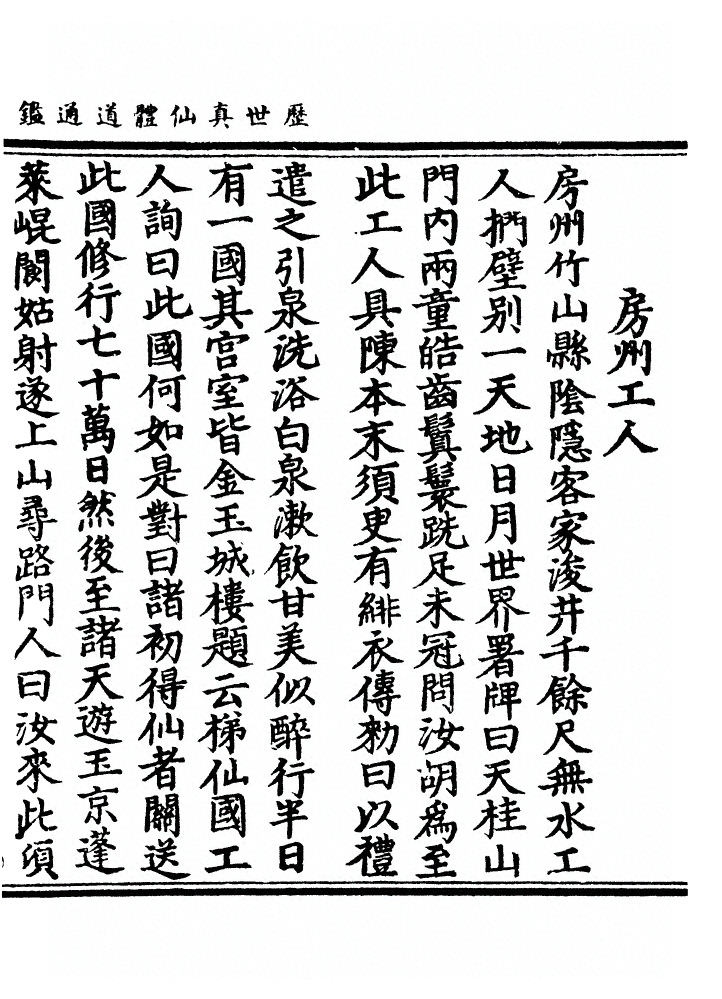 歷世真仙體道通鑑
房州工人
房州竹山縣陰隱客家浚井千餘尺無水工
人捫壁別一天地日月世界署牌曰天桂山
門內兩童皓齒鬒鬟跣足未冠問汝胡為至
此工人具陳本末須臾有緋衣傳勑曰以禮
遣之引泉洗浴白泉漱飲甘美似醉行半日
有一國其宮室皆金玉城樓題云梯仙國工
人詢曰此國何如是對曰諸初得仙者關送
此國修行七十萬日然後至諸天遊玉京蓬
萊崐閬姑射遂上山尋路門人曰汝來此須